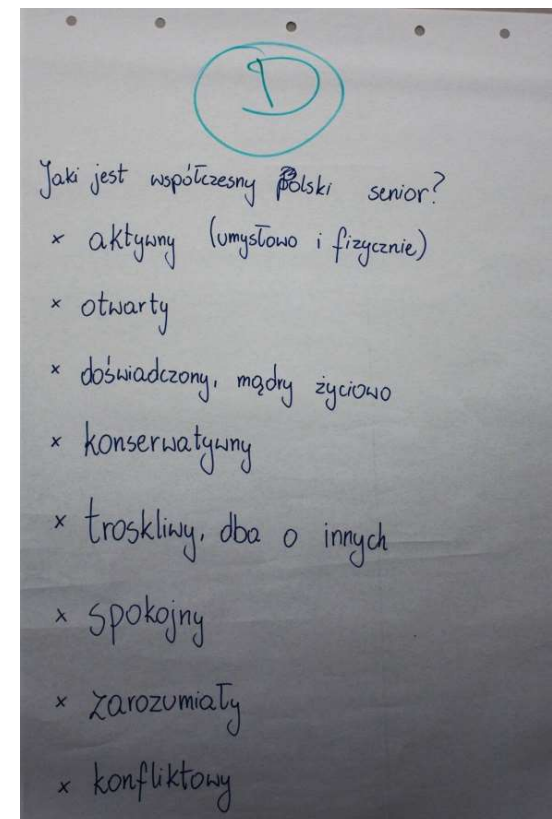 D
Jaki jest współczesny polski senior?
× aktywny (umysłowo i fizycznie)
× otwarty
× doświadczony, mądry życiowo
× konserwatywny
× troskliwy, dba o innych
× spokojny
× zarozumiały
× konfliktowy